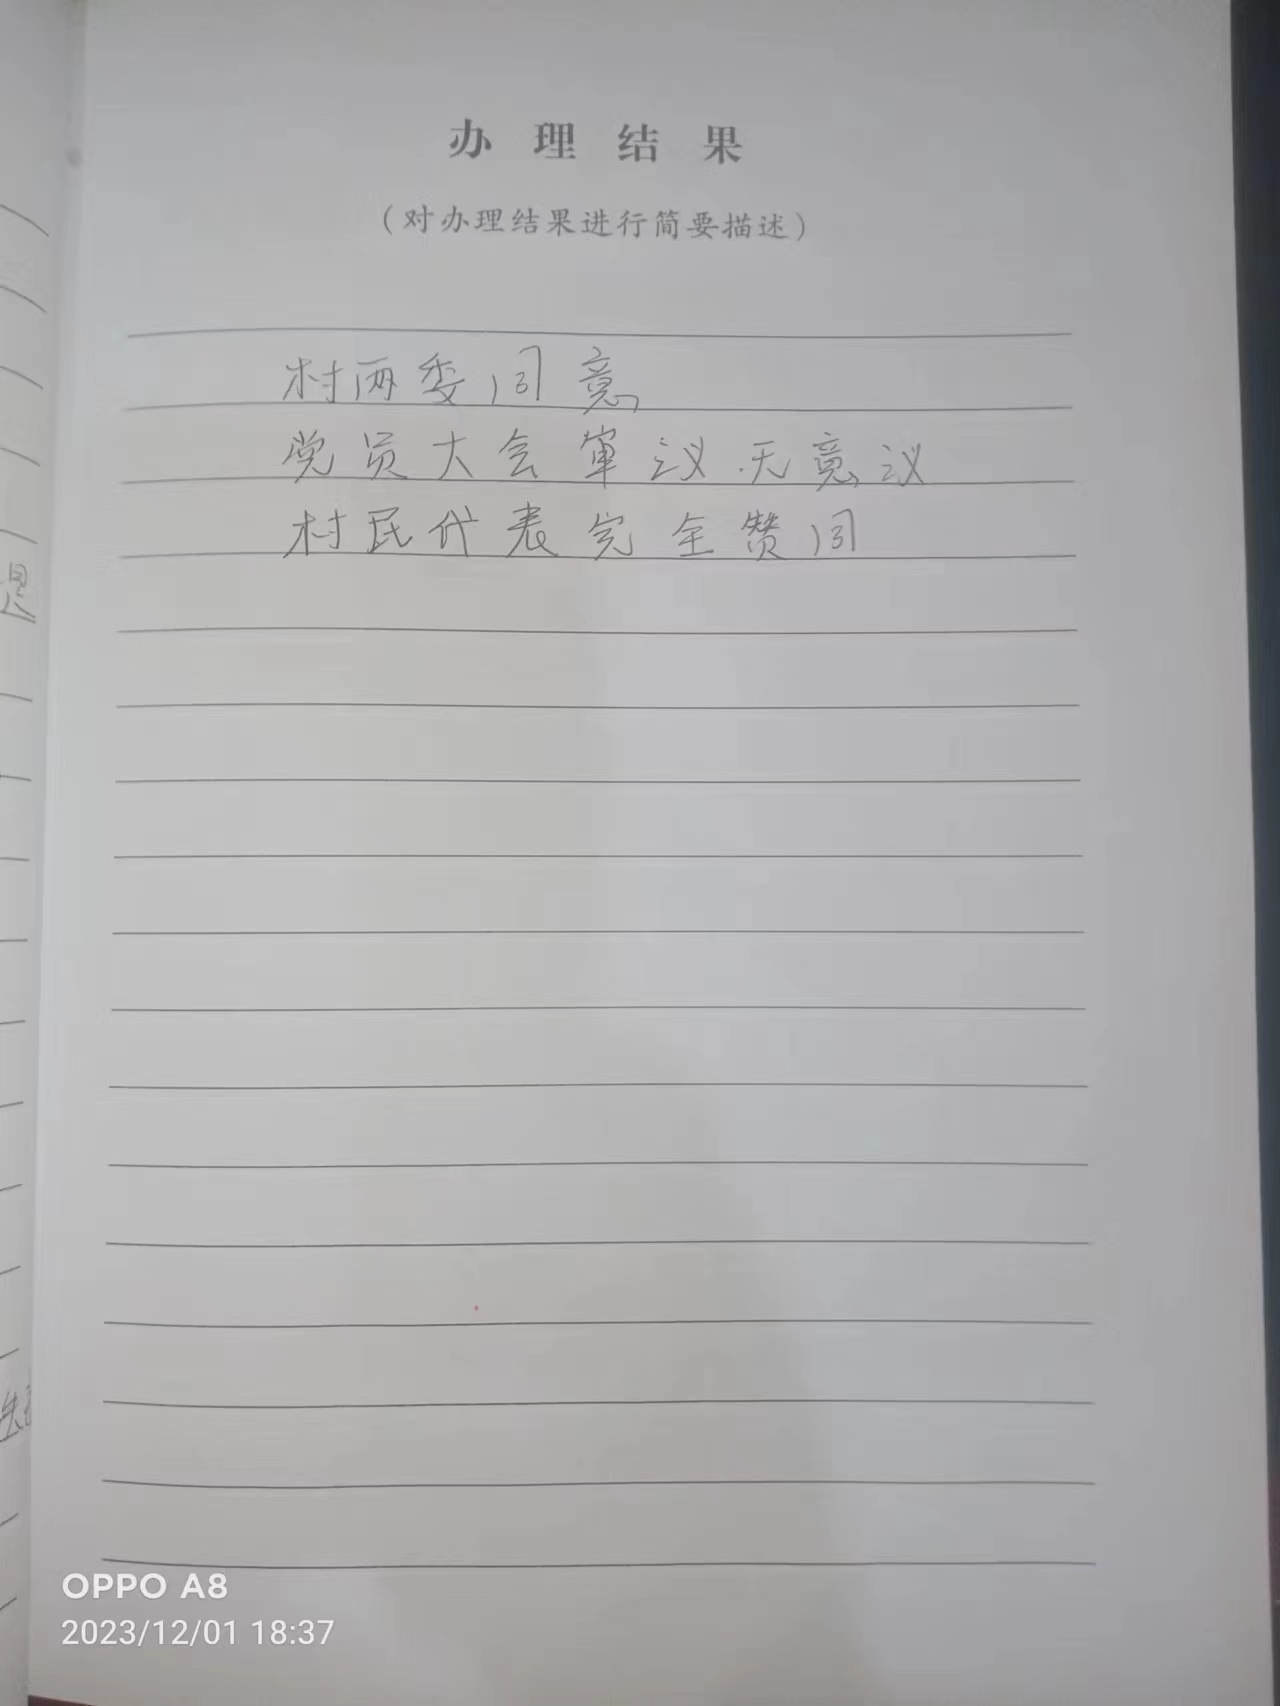 办理结果
(对办理结果进行简要描述)
村两委同意
党员大会审议.无意议
村民代表完全赞同
OPPO A8
2023/12/01 18:37